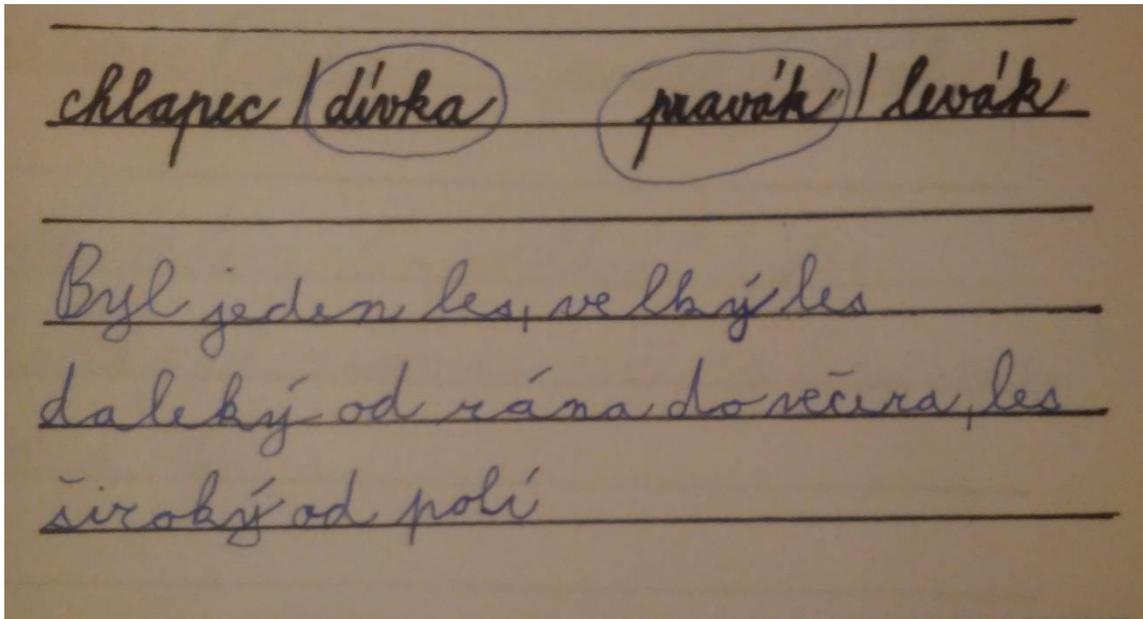 chlapec / dívka pravák / levák
Byl jeden les, velký les
daleký od rána do večera, les
široký od polí